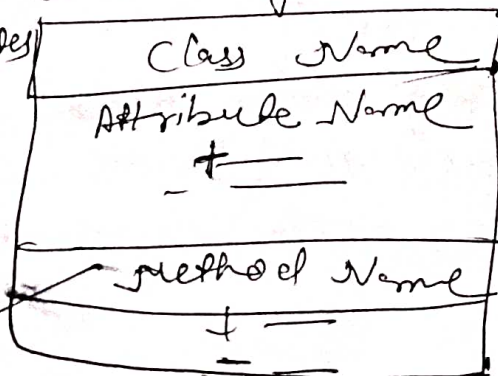 Class Name
Attribute Name
+ ___
- ___
Method Name
+ ___
- ___